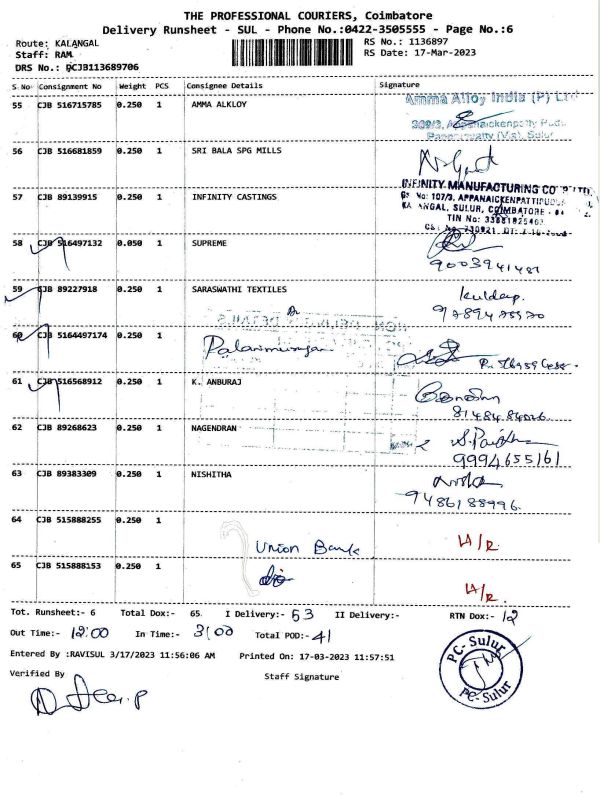 THE PROFESSIONAL COURIERS, Coimbatore
Delivery Runsheet - SUL - Phone No.:0422-3505555 - Page No.:6
Route: KALANGAL
RS No.: 1136897
Staff: RAM
RS Date: 17-Mar-2023
DRS No.: DCJB113689706
S.No Consignment No Weight PCS Consignee Details Signature
55 CJB 516715785 0.250 1 AMMA ALKLOY Amma Alloy India (P) Ltd
56 CJB 516681859 0.250 1 SRI BALA SPG MILLS
57 CJB 89139915 0.250 1 INFINITY CASTINGS INFINITY MANUFACTURING CO
No: 107/3, APPANAICKENPATTIPUDUR
SULUR, COIMBATORE
58 CJB 516497132 0.050 1 SUPREME
59 CJB 89227918 0.250 1 SARASWATHI TEXTILES
60 CJB 5164497174 0.250 1 Palanimurugan
61 CJB 516568912 0.250 1 K. ANBURAJ
62 CJB 89268623 0.250 1 NAGENDRAN
9994655161
63 CJB 89383309 0.250 1 NISHITHA
9486188996.
64 CJB 515888255 0.250 1 Union Bank
65 CJB 515888153 0.250 1
Tot. Runsheet:- 6 Total Dox:- 65. I Delivery:- 53 II Delivery:- RTN Dox:- 12
Out Time:- 12:00 In Time:- 3:00 Total POD:- 41
Entered By :RAVISUL 3/17/2023 11:56:06 AM Printed On: 17-03-2023 11:57:51
Verified By Staff Signature
PC- Sulur
PC- Sulur